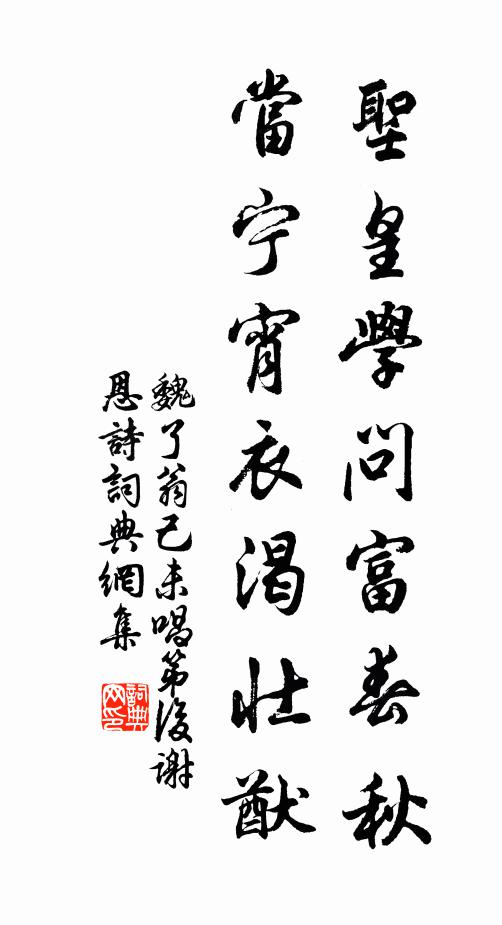 聖皇學問富春秋
當宁宵衣渴壯猷
魏了翁己未唱第後謝
恩詩詞典網集
詞典
网印